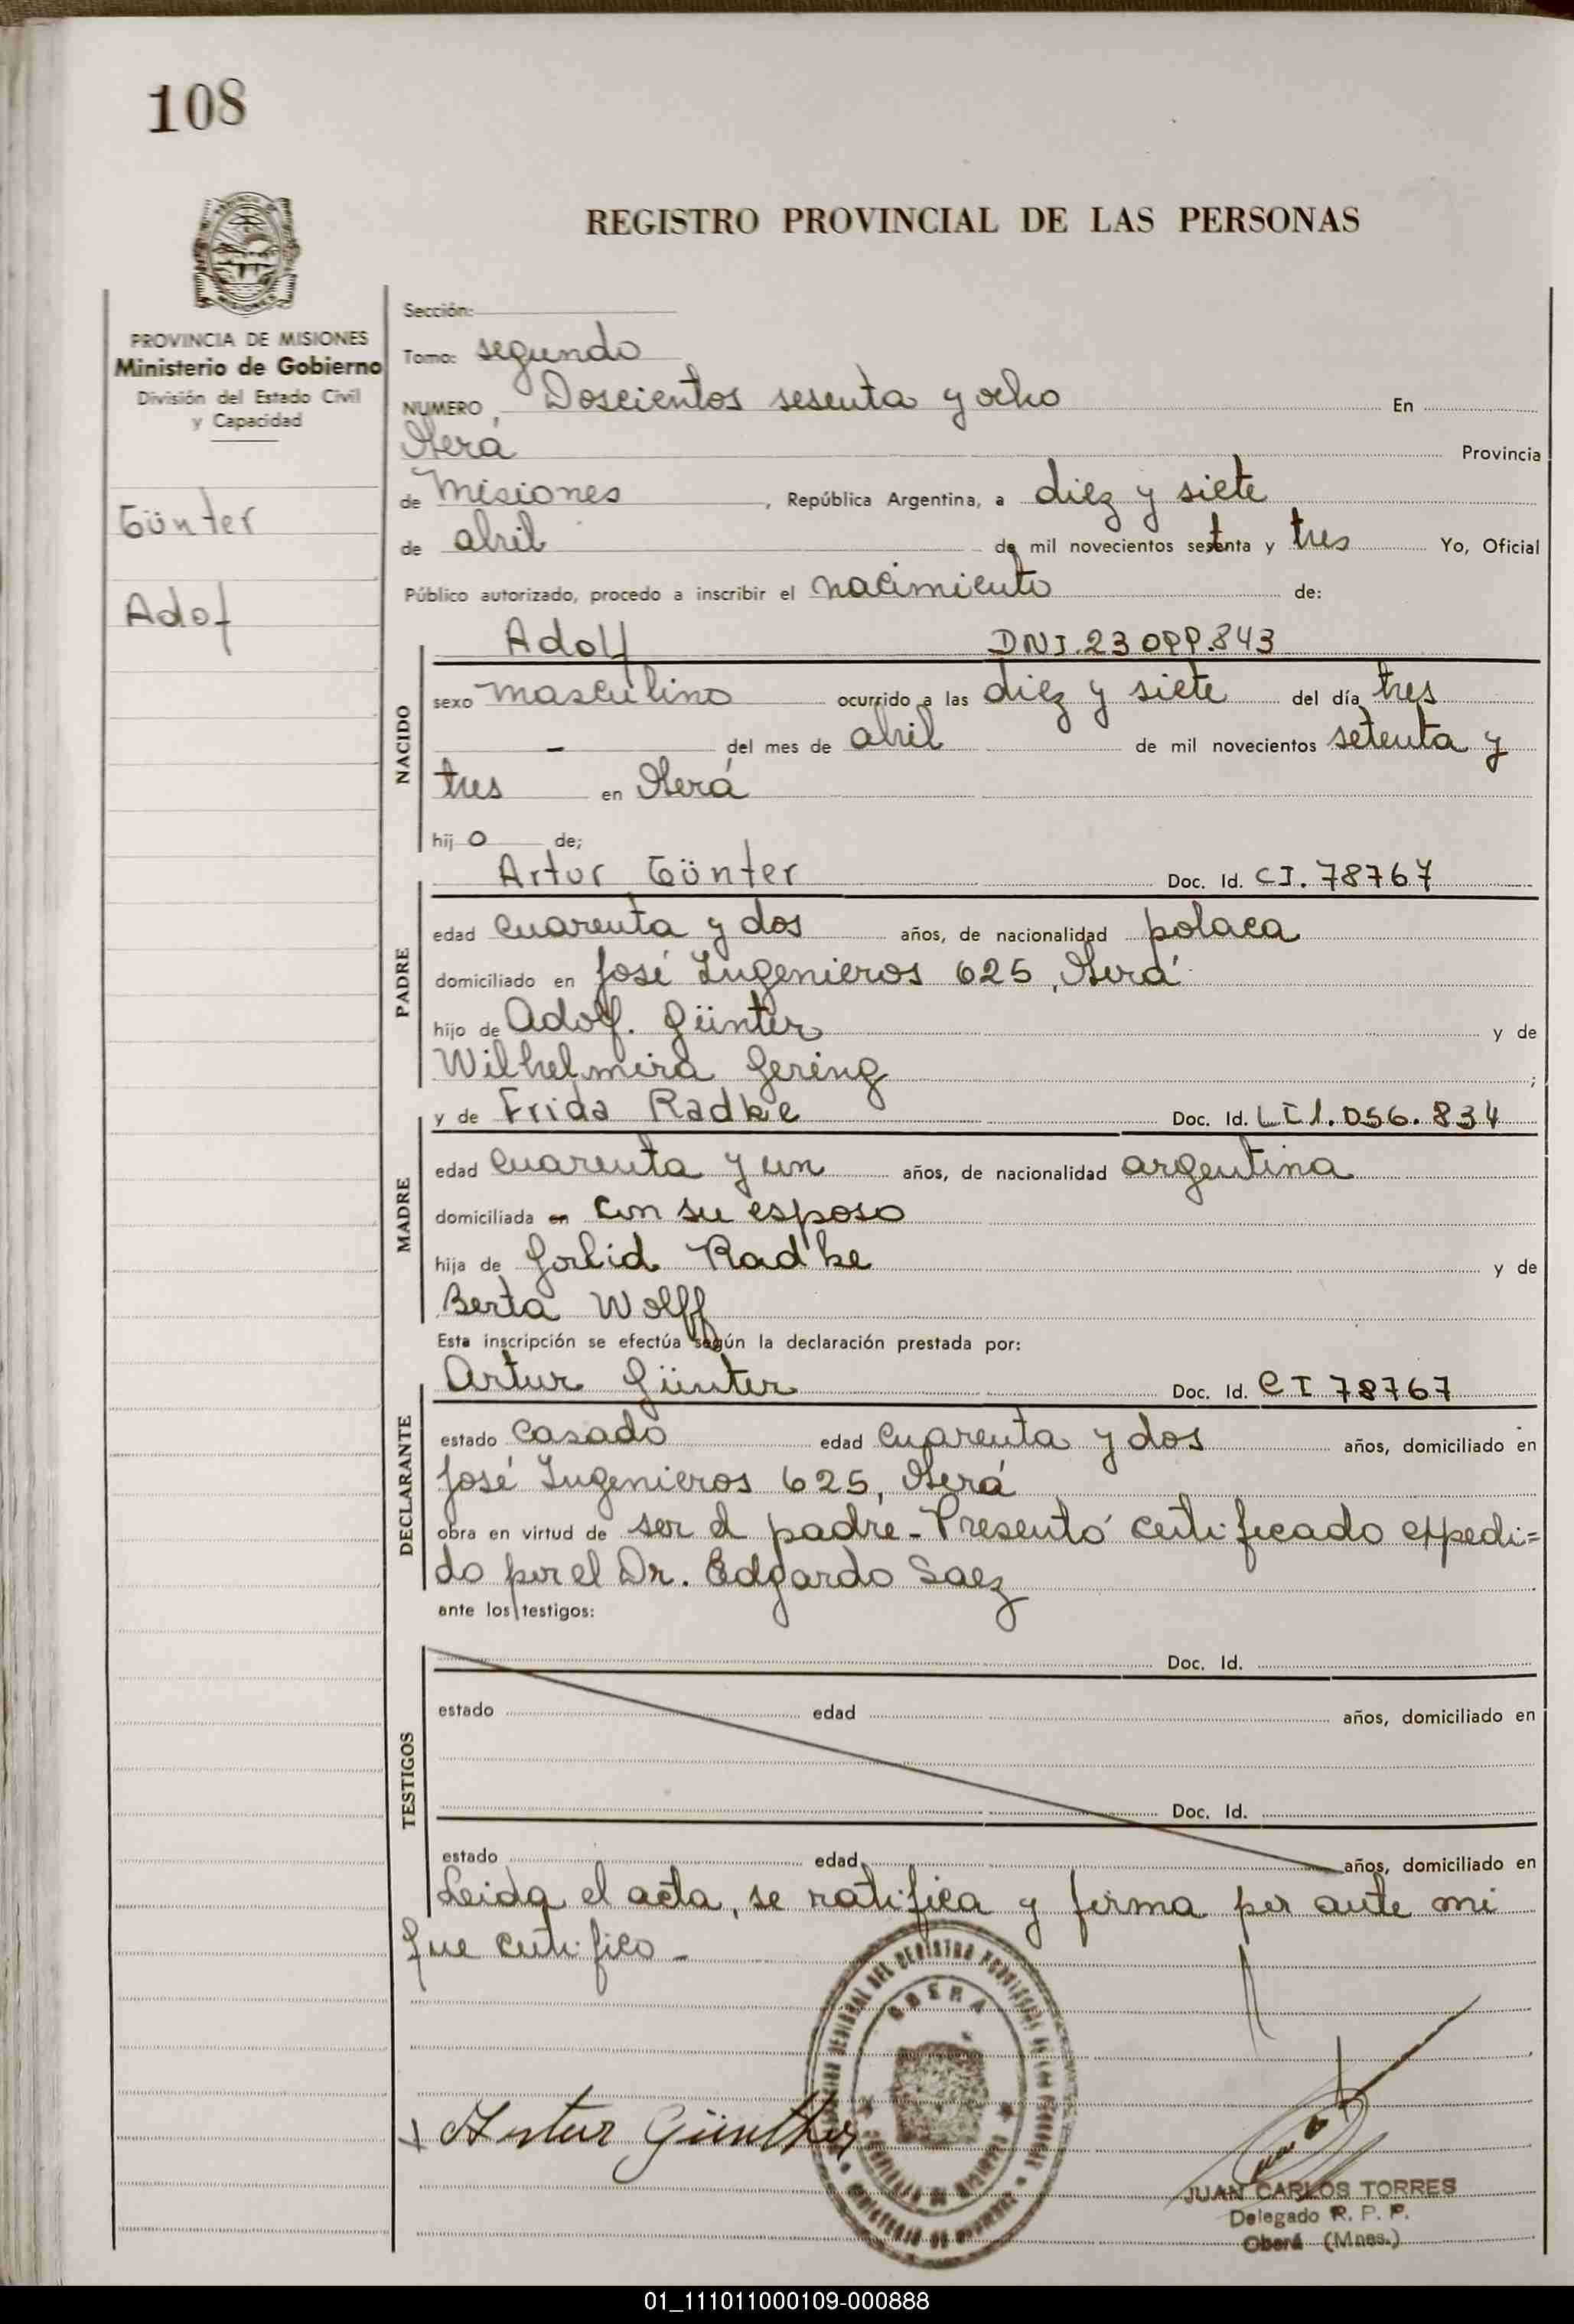 108
REGISTRO PROVINCIAL DE LAS PERSONAS
PROVINCIA DE MISIONES
Ministerio de Gobierno
División del Estado Civil
y Capacidad
Günter
Adof
Sección:
Tomo: segundo
NUMERO Doscientos sesenta y ocho En
Oberá Provincia
de Misiones, República Argentina, a diez y siete
de abril de mil novecientos setenta y tres Yo, Oficial
Público autorizado, procedo a inscribir el nacimiento de:
NACIDO
Adolf DNI.23 099.843
sexo masculino ocurrido a las diez y siete del día tres
- del mes de abril de mil novecientos setenta y
tres en Oberá
hij o de;
PADRE
Artur Günter Doc. Id. CI. 78767
edad cuarenta y dos años, de nacionalidad polaca
domiciliado en José Ingenieros 625, Oberá
hijo de Adolf. Günter y de
Wilhelmira Gering ;
MADRE
y de Frida Radke Doc. Id. LC 1.056.834
edad cuarenta y un años, de nacionalidad argentina
domiciliada en con su esposo
hija de Gorlid Radke y de
Berta Wolff
Esta inscripción se efectúa según la declaración prestada por:
DECLARANTE
Artur Günter Doc. Id. CI 78767
estado casado edad cuarenta y dos años, domiciliado en
José Ingenieros 625, Oberá
obra en virtud de ser el padre - Presentó certificado expedi=
do por el Dr. Edgardo Saez
ante los testigos:
TESTIGOS
Doc. Id.
estado edad años, domiciliado en
Doc. Id.
estado edad años, domiciliado en
Leida el acta, se ratifica y firma por ante mi
que certifico -
OBERA
Artur Günther
JUAN CARLOS TORRES
Delegado R. P. P.
Oberá (Mnes.)
01_111011000109-000888